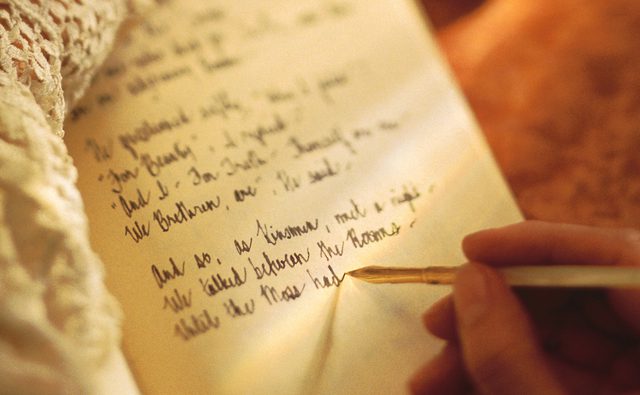 In an adjoining Room
He questioned softly "Why I
"For Beauty", I replied -
"And I - For Truth - Themself are one -
We Brethren, are", He said -
And so, as Kinsmen, met a night -
We talked between the Rooms -
Until the Moss had